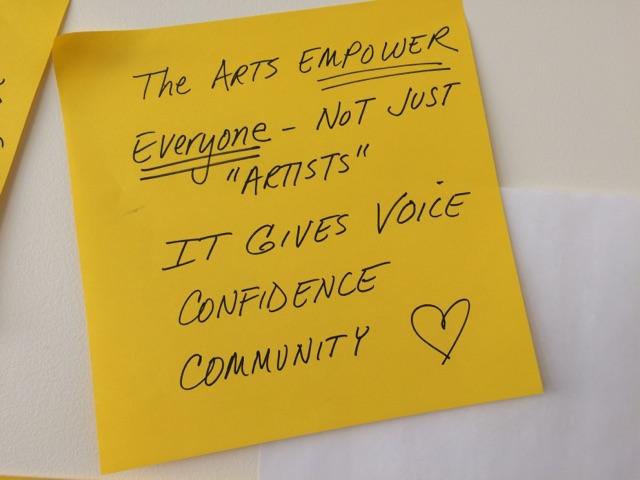 The ARTS EMPOWER
Everyone - NOT JUST
"ARTISTS"
IT GIVES VOICE
CONFIDENCE
COMMUNITY ♡